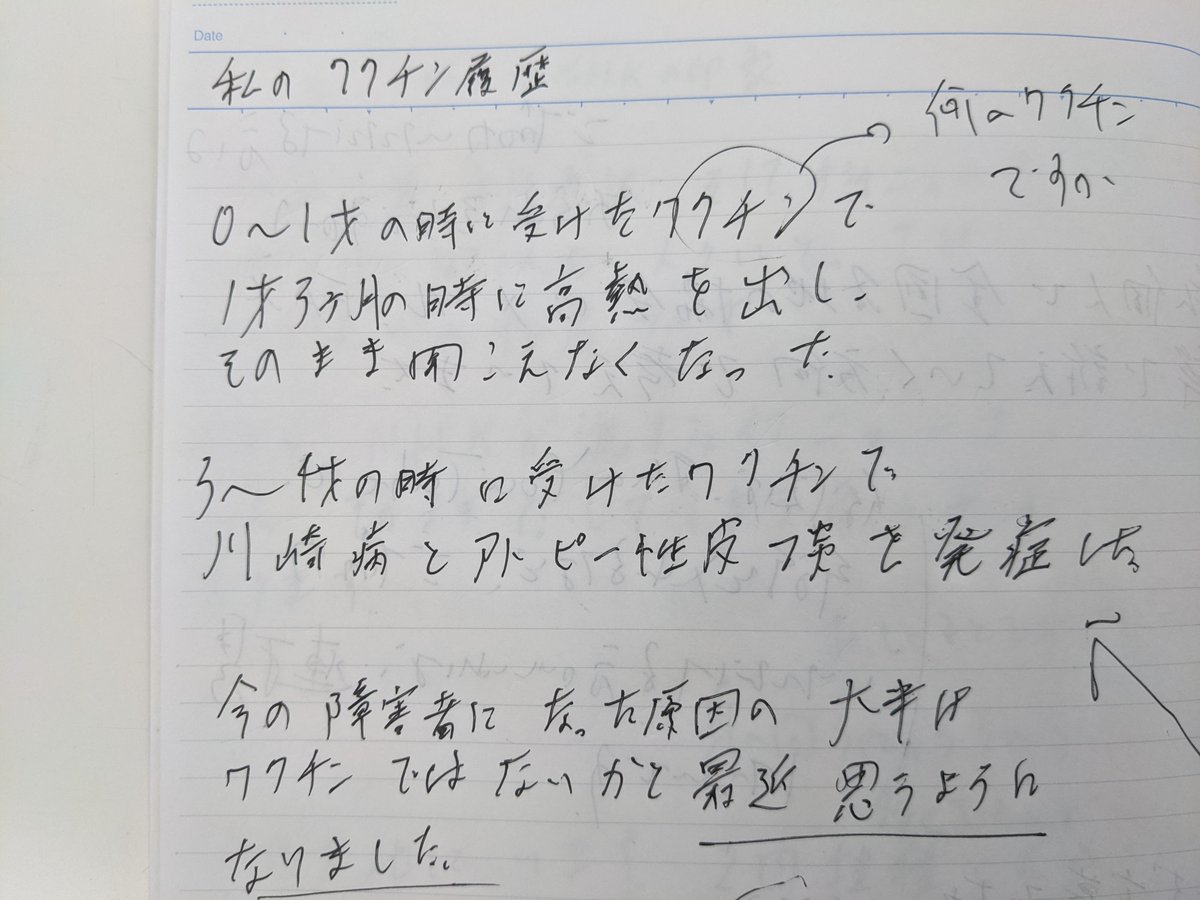 Date
私の ワクチン履歴
何のワクチン
ですか
0〜1才の時に受けたワクチンで
1才3ヶ月の時に高熱を出し、
そのまま聞こえなくなった。
3〜4才の時に受けたワクチンで
川崎病とアトピー性皮フ炎を発症した。
今の障害者になった原因の大半は
ワクチンではないかと最近思うように
なりました。